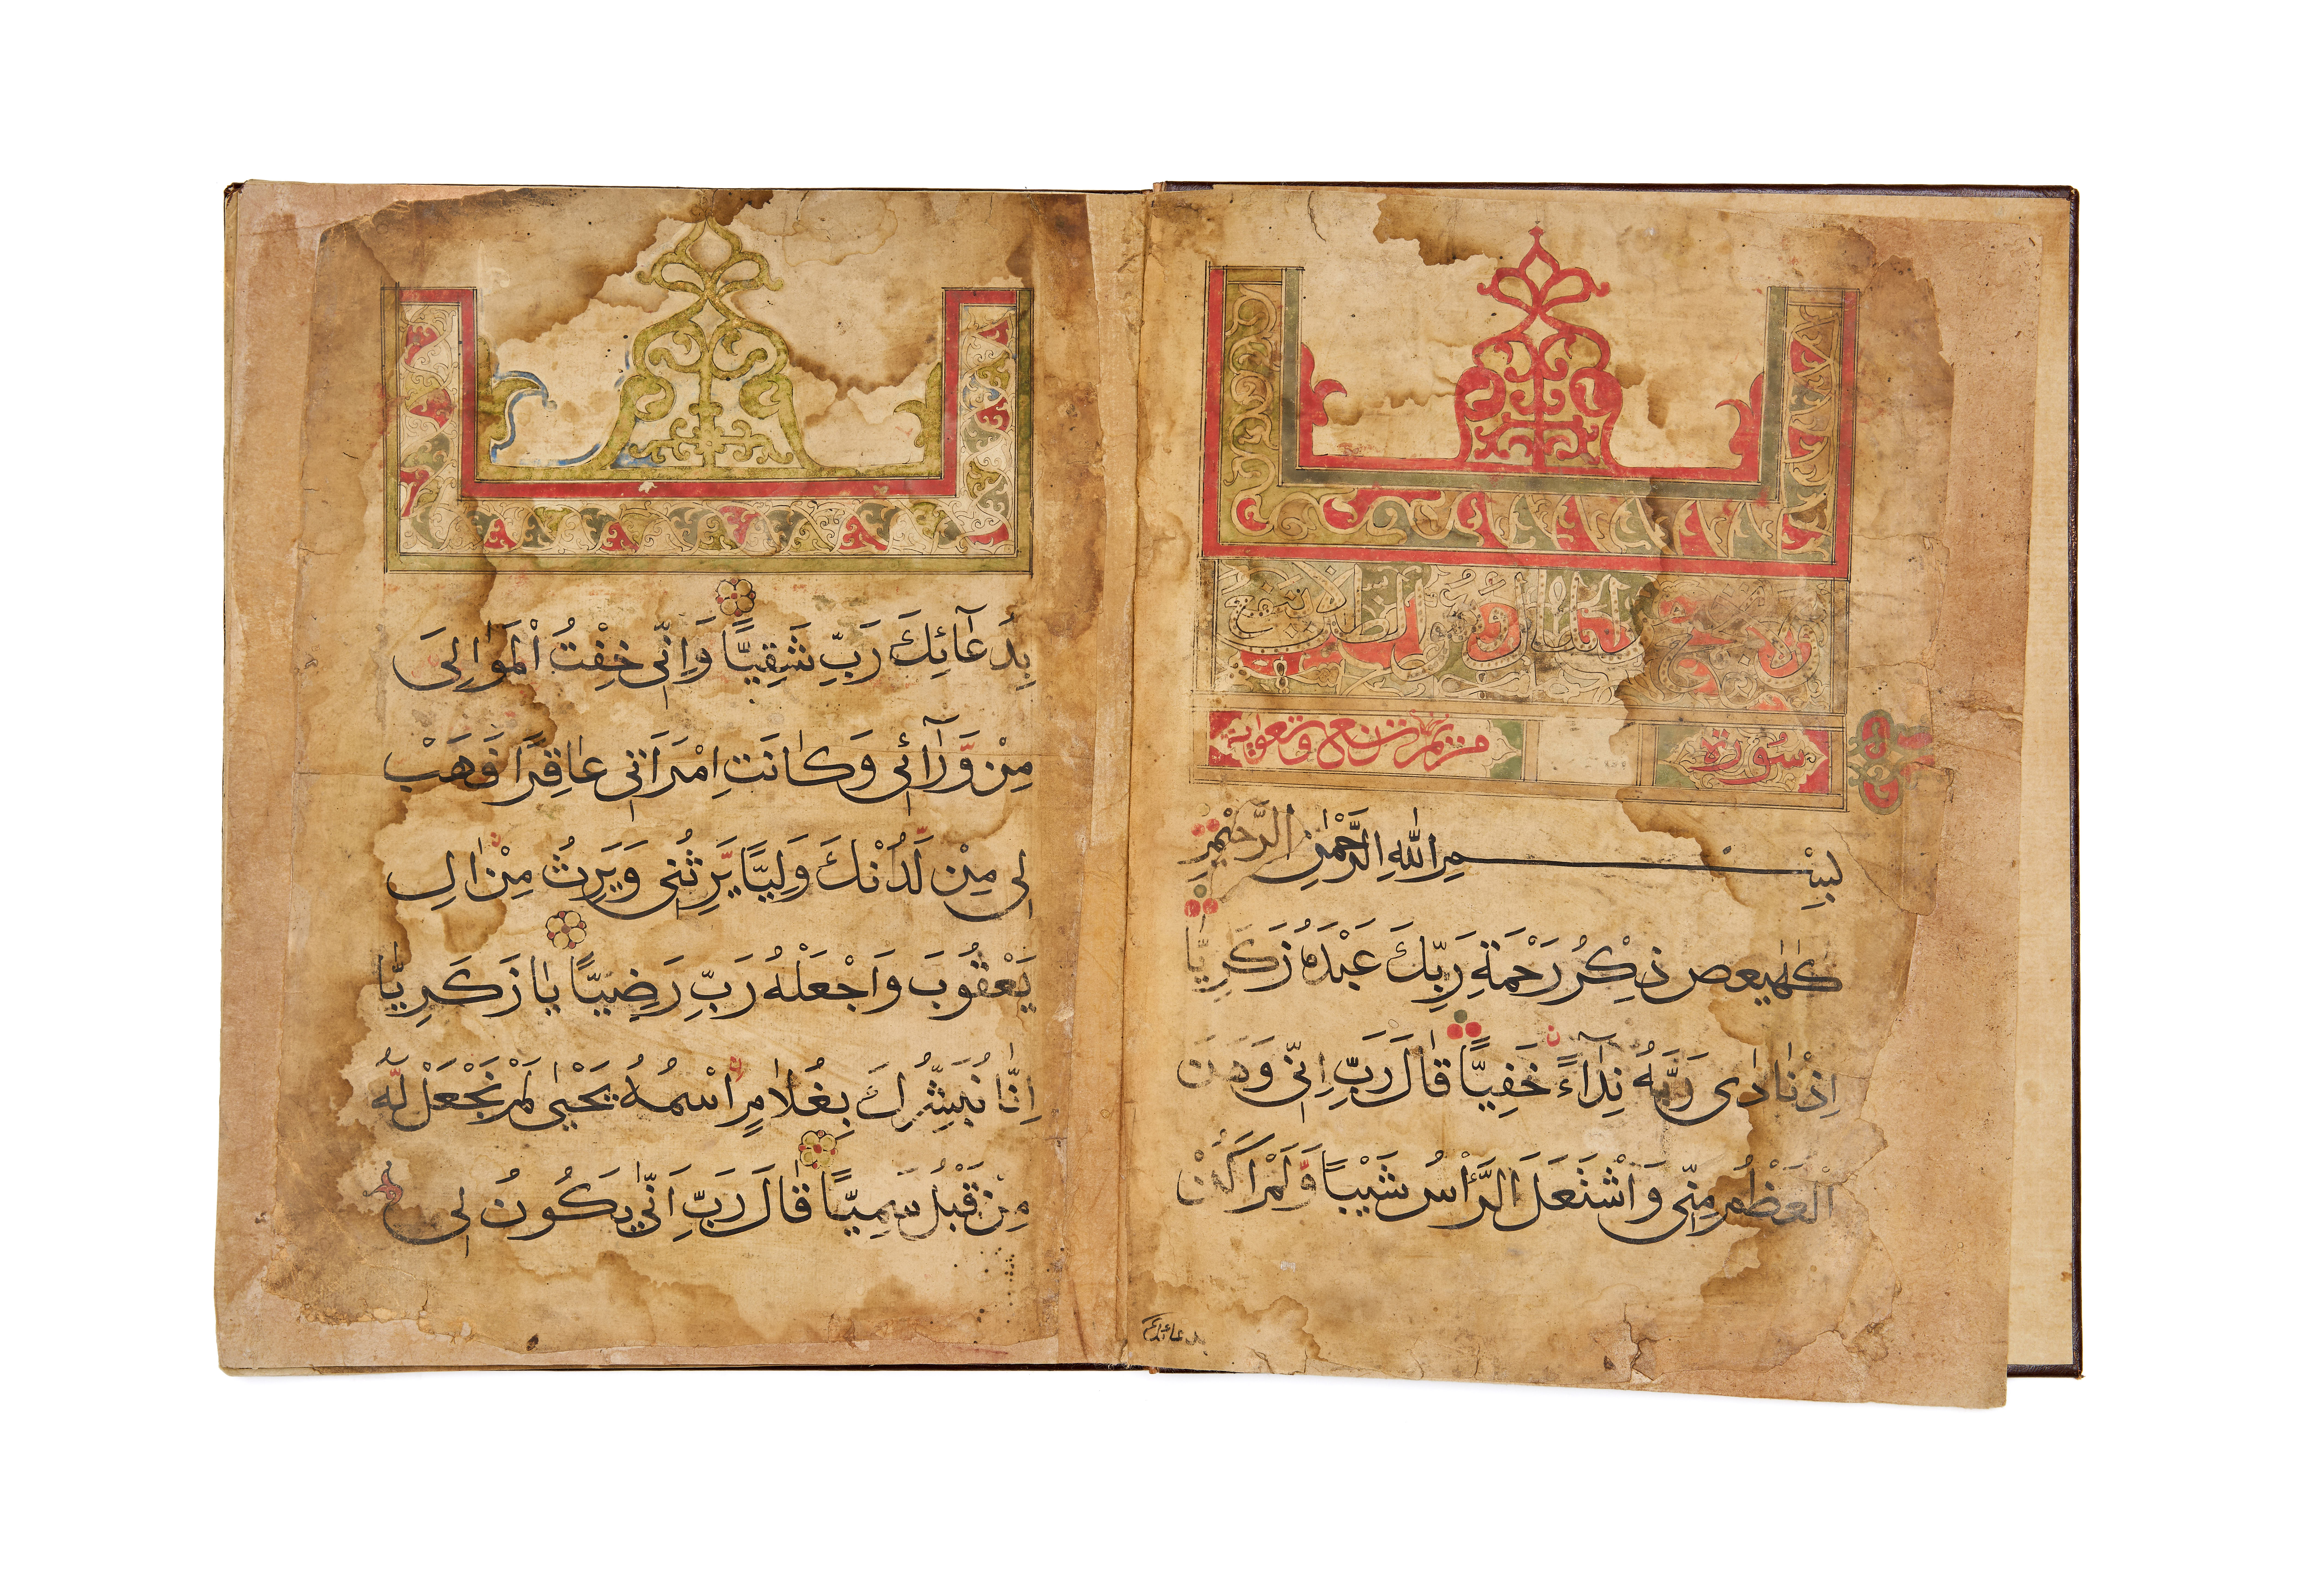 سورة
مريم تسع وتسعون اية
بِسْمِ اللّٰهِ الرَّحْمٰنِ الرَّحِيْمِ
كٓهٰيٰعص ذِكْرُ رَحْمَةِ رَبِّكَ عَبْدَهُ زَكَرِيَّا
اِذْ نَادٰى رَبَّهُ نِدَآءً خَفِيًّا قَالَ رَبِّ اِنِّى وَهَنَ
الْعَظْمُ مِنِّى وَاشْتَعَلَ الرَّأْسُ شَيْبًا وَّلَمْ اَكُنْ
بدعائك
بِدُعَآئِكَ رَبِّ شَقِيًّا وَاِنِّى خِفْتُ الْمَوَالِىَ
مِنْ وَّرَآئِى وَكَانَتِ امْرَاَتِى عَاقِرًا فَهَبْ
لِى مِنْ لَّدُنْكَ وَلِيًّا يَّرِثُنِى وَيَرِثُ مِنْ اٰلِ
يَعْقُوْبَ وَاجْعَلْهُ رَبِّ رَضِيًّا يَا زَكَرِيَّا
اِنَّا نُبَشِّرُكَ بِغُلَامٍ اسْمُهُ يَحْيٰى لَمْ نَجْعَلْ لَّهُ
مِنْ قَبْلُ سَمِيًّا قَالَ رَبِّ اَنّٰى يَكُوْنُ لِى